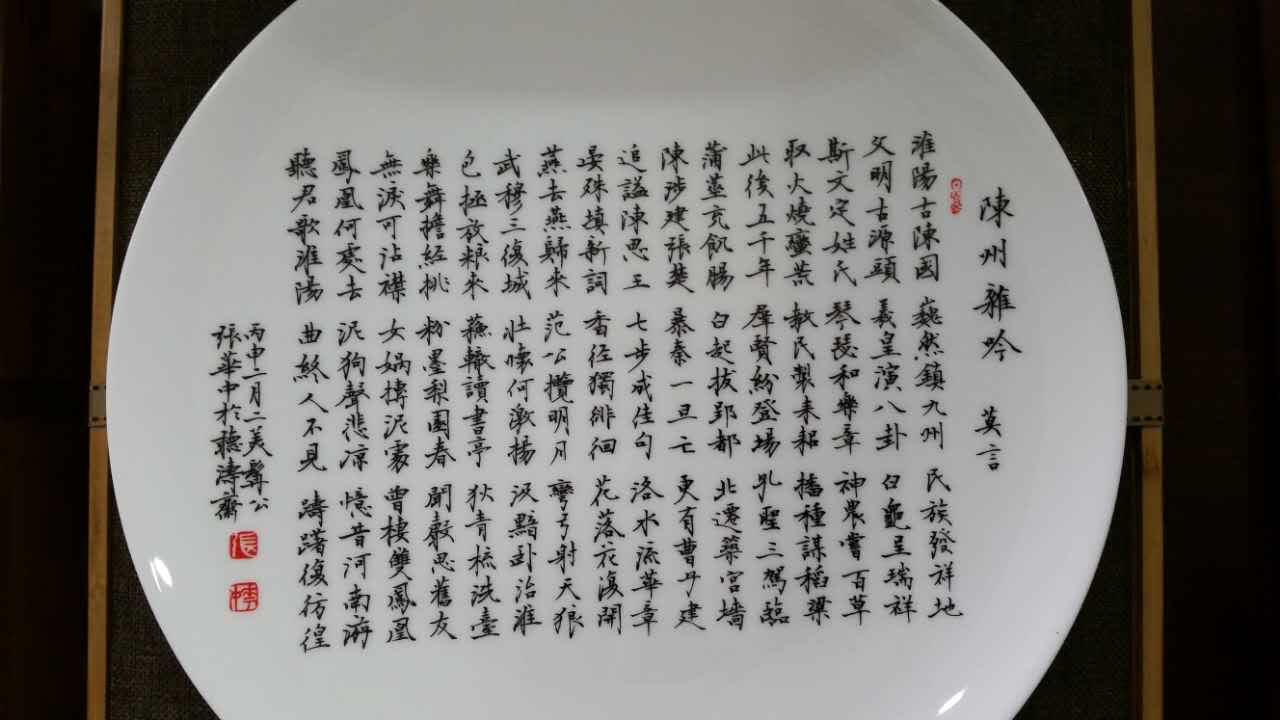 陳州雜吟 莫言
淮陽古陳國 巍然鎮九州 民族發祥地
文明古源頭 羲皇演八卦 白龜呈瑞祥
斯文定姓氏 琴瑟和樂章 神農嚐百草
取火燒蠻荒 教民製耒耜 播種謀稻粱
此後五千年 羣賢紛登場 孔聖三駕臨
蒲莖充飢腸 白起拔郢都 北遷築宮墻
陳涉建張楚 暴秦一旦亡 更有曹子建
追謚陳思王 七步成佳句 洛水流華章
晏殊填新詞 香徑獨徘徊 花落花復開
燕去燕歸來 范公攬明月 彎弓射天狼
武穆三復城 壯懷何激揚 汲黯卧治淮
包拯放粮來 蘇轍讀書亭 狄青梳洗臺
樂舞擔經挑 粉墨梨園春 聞鼓思舊友
無淚可沾襟 女媧摶泥處 曾棲雙鳳凰
鳳凰何處去 泥狗聲悲凉 憶昔河南游
聽君歌淮陽 曲終人不見 躊躇復彷徨
丙申二月二美髯公
張華中於聽濤齋